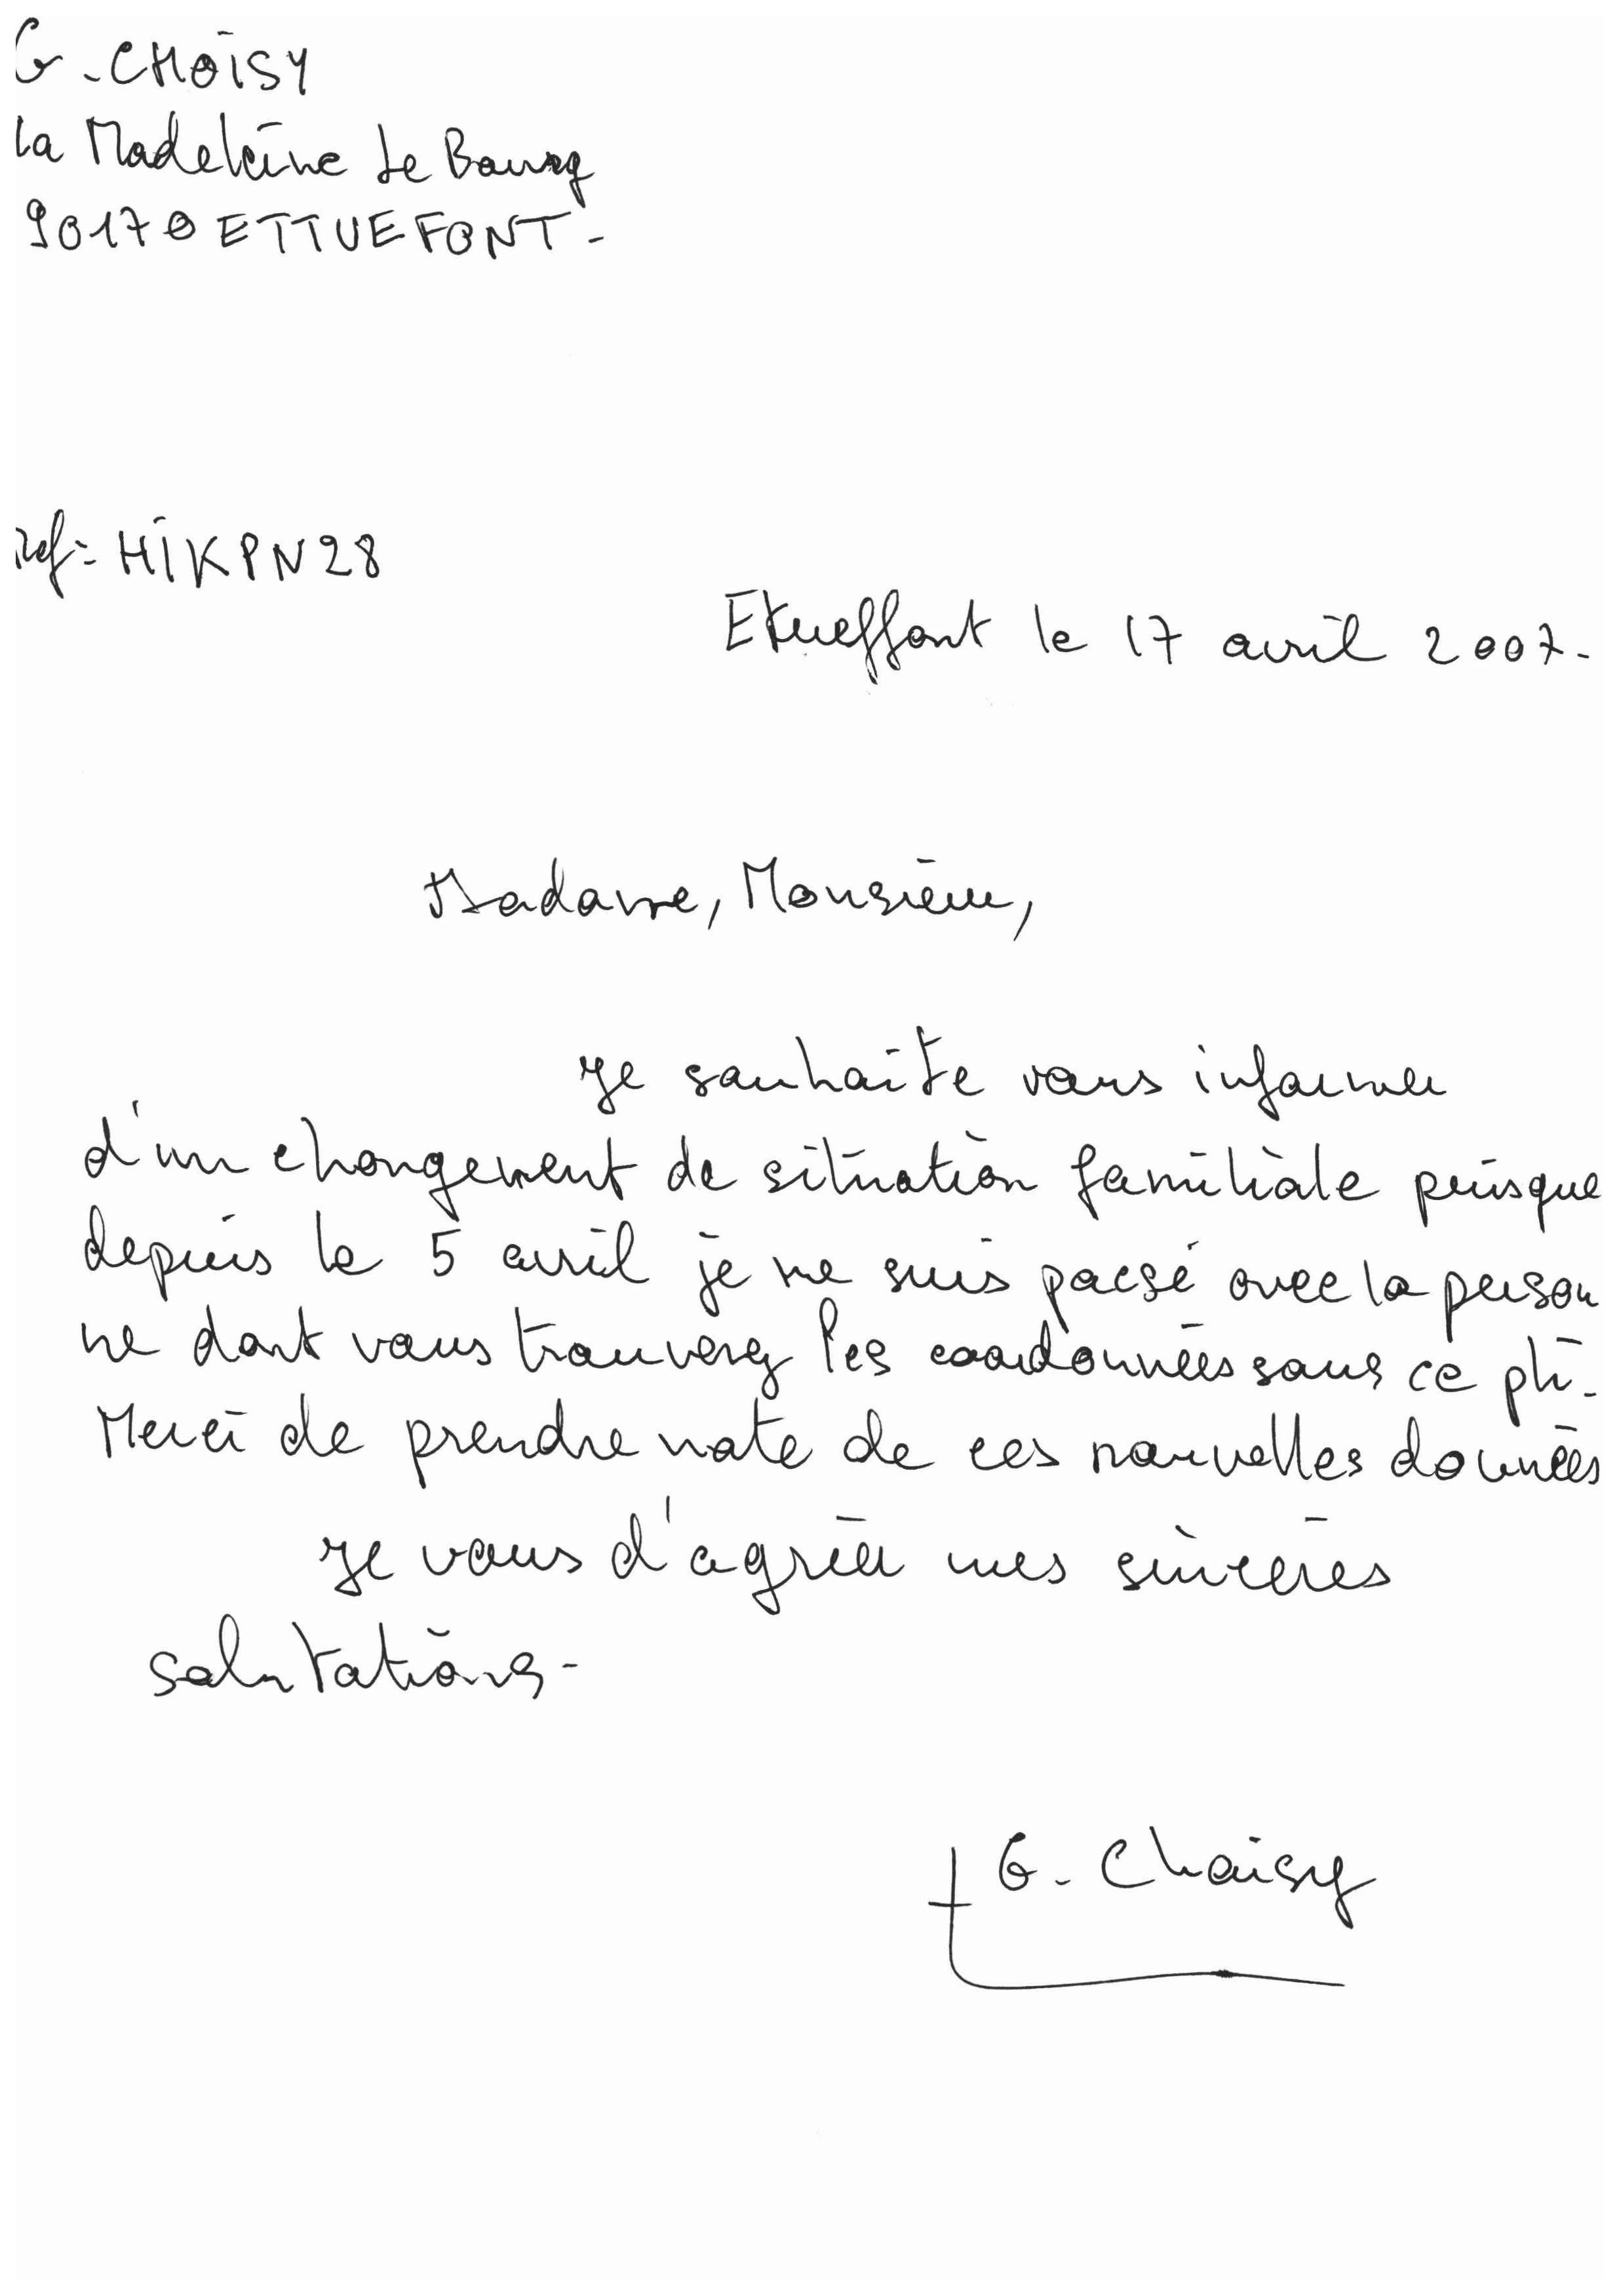 G. CHOISY
La Madeleine Le Bourg
90170 ETTUEFONT.
Ref: HIKPN28
Etueffont le 17 avril 2007.
Madame, Monsieur,
Je souhaite vous informer
d'un changement de situation familiale puisque
depuis le 5 avril je me suis pacsé avec la person
ne dont vous trouverez les coordonnées sous ce pli.
Merci de prendre note de ces nouvelles données
Je vous d'agréer mes sincères
salutations.
G. Choisy